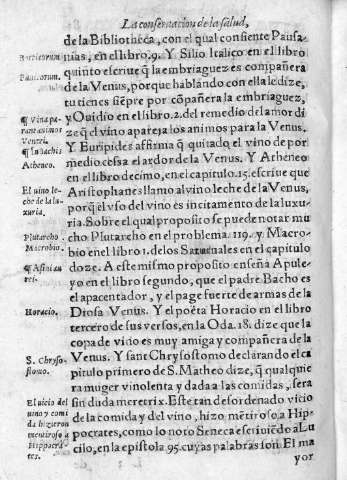 La conseruacion de la salud,
de la Bibliotheca, con el qual consiente Pausa-
nias, en el libro.9. Y Silio Italico en el libro
quinto escriue q̃ la embriaguez es compañera
de la Venus, porque hablãdo con ella le dize,
tu tienes siẽpre por cõpañera la embriaguez,
y Ouidio en el libro.2.del remedio del amor di
ze q̃ el vino apareja los animos para la Venus.
Y Euripides affirma q̃ quitado el vino de por
medio cessa el ardor de la Venus. Y Atheneo
en el libro decimo, en el capitulo.15.escriue que
Aristophanes llamo al vino leche de la Venus,
porq̃ el vso del vino es incitamento de la luxu-
ria. Sobre el qual proposito se puede notar mu
cho Plutarcho en el problema.119. y Macro-
bio en el libro 1. de los Saturnales en el capitulo
doze. A este mismo proposito enseña Apule-
yo en el libro segundo, que el padre Bacho es
el apacentador, y el page fuerte de armas de la
Diosa Venus. Y el poëta Horacio en el libro
tercero de sus versos, en la Oda.18. dize que la
copa de vino es muy amiga y compañera de la
Venus. Y sant Chrysostomo declarando el ca
pitulo primero de S. Matheo dize, q̃ qualquie
ra muger vinolenta y dada a las comidas, sera
sin duda meretrix. Este tan desordenado vicio
de la comida y del vino, hizo mẽtiroso a Hip
pocrates, como lo noto Seneca escriuiẽdo a Lu
cilo, en la epistola 95. cuyas palabras son. El ma
yor
Pancorum.
¶ Vina pa-
rant animos
Veneri.
Atheneo.
El uino le-
che de la lu-
xuria.
Plutarcho
Macrobio.
Horacio.
S. Chryso-
stomo.
El uicio del
uino y comi
da hizieron
mentiroso a
Hippocra-
tes.